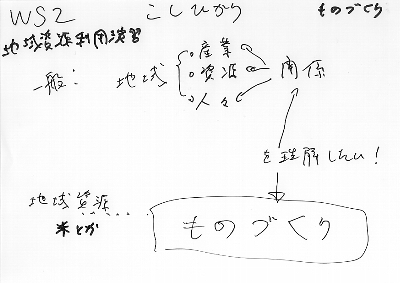 WS2 こしひかり ものづくり
地域資源利用演習
一般: 地域 { ・産業
・資源 関係
・人々
を理解したい!
地域資源
米とか
ものづくり